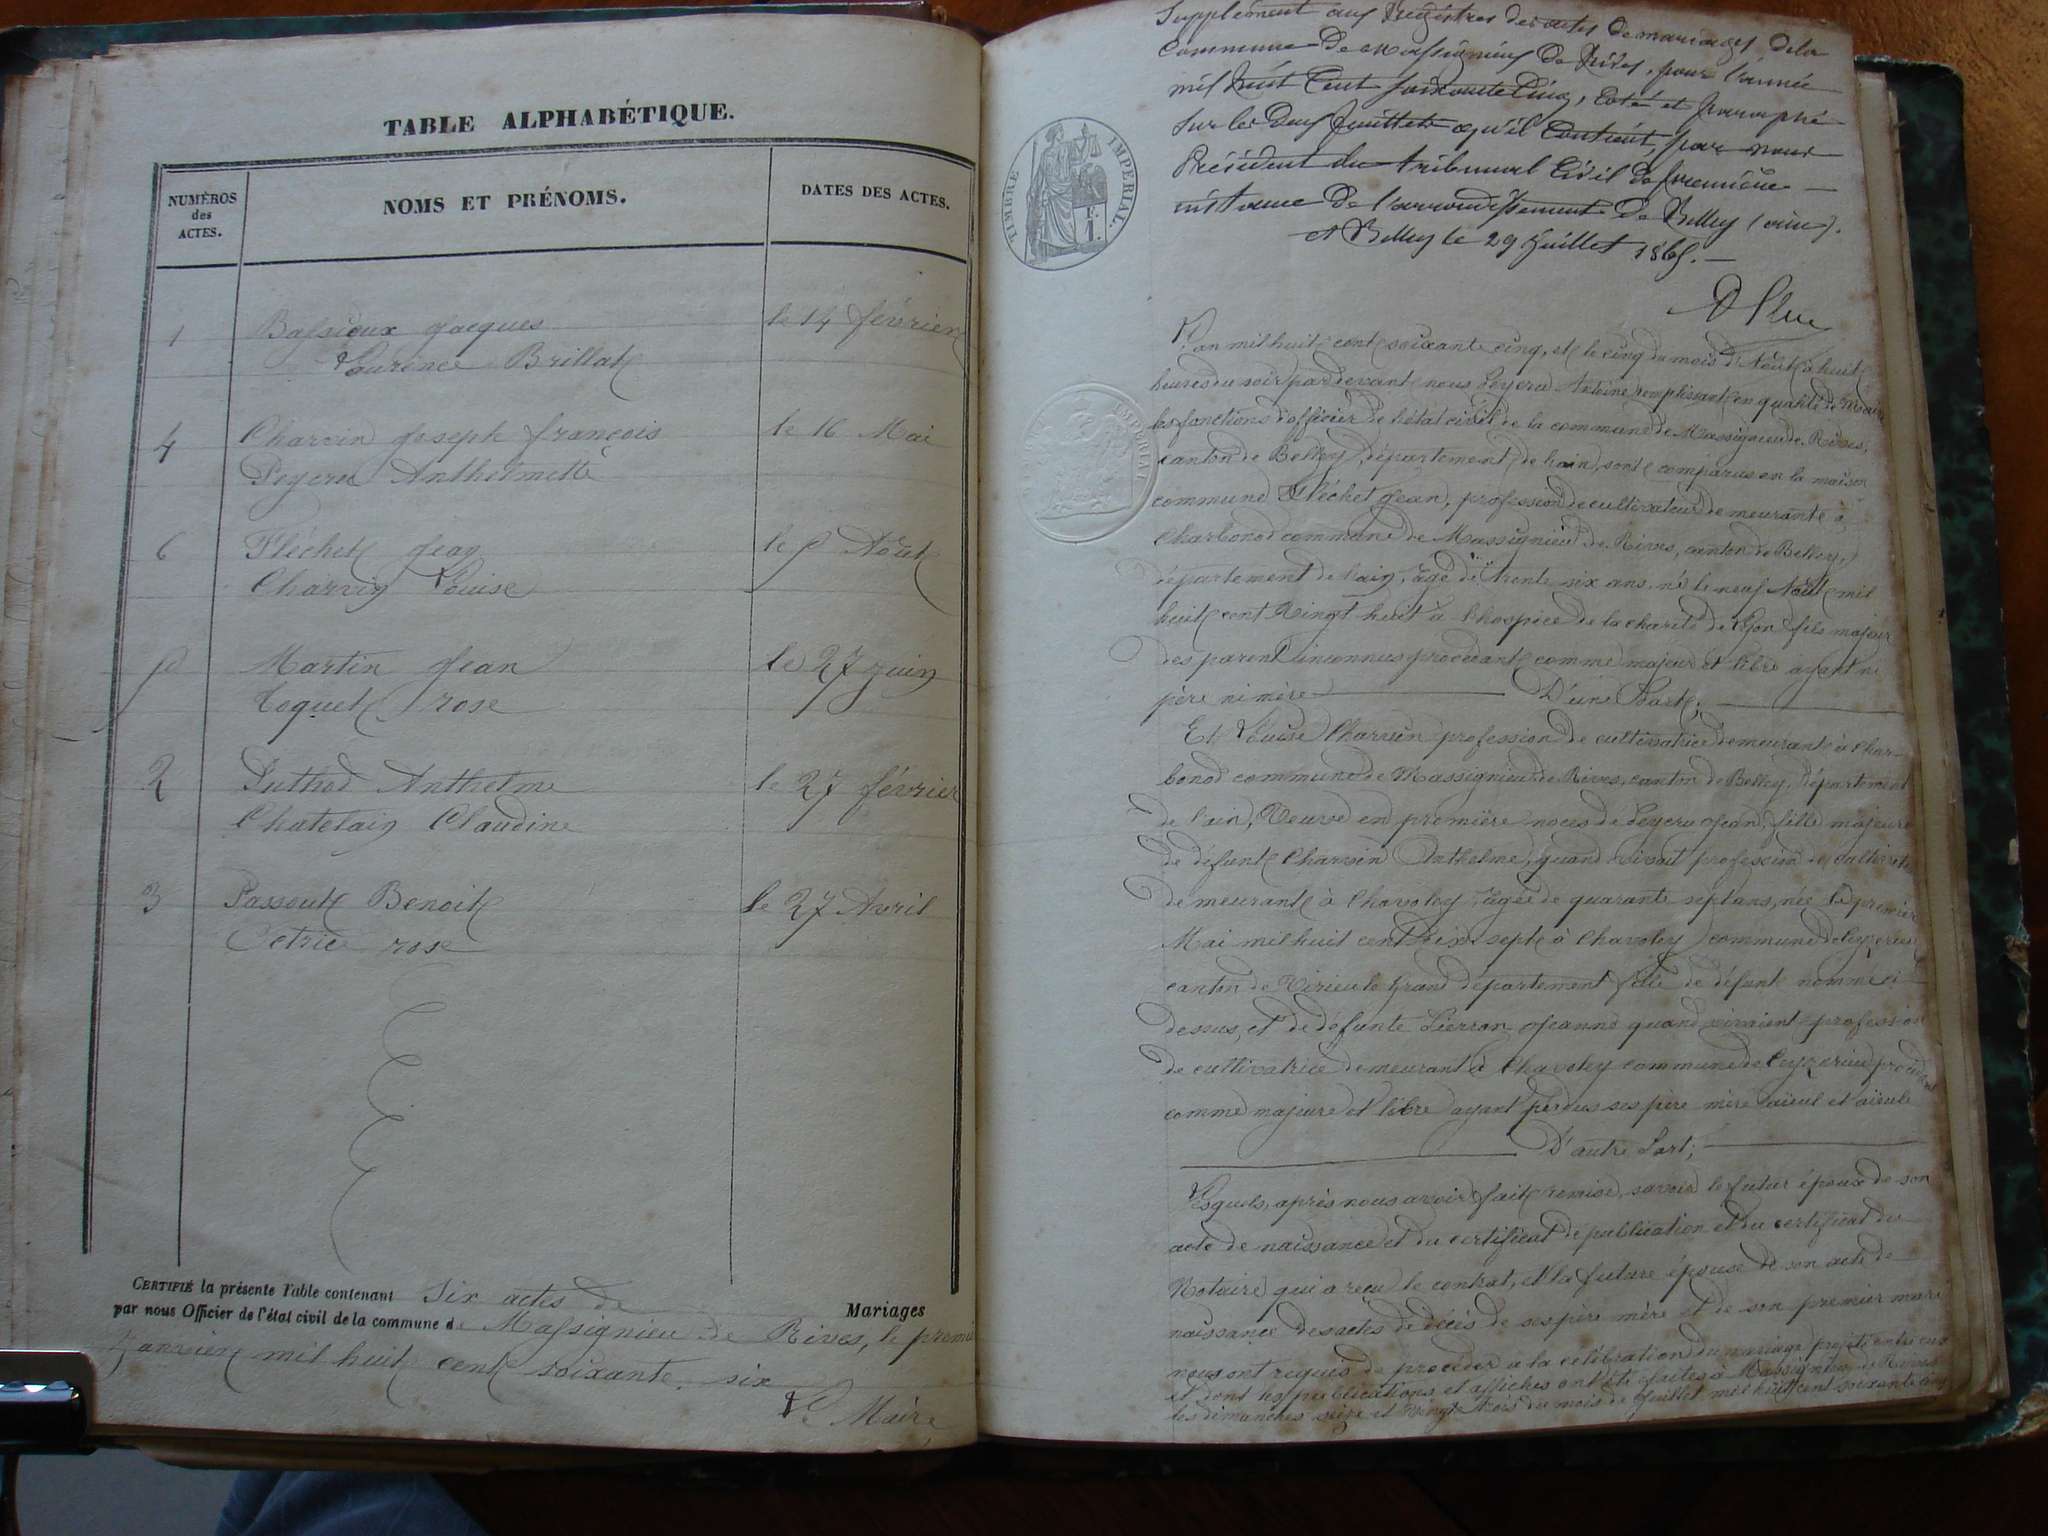 TABLE ALPHABÉTIQUE.
NUMÉROS
des
ACTES.
NOMS ET PRÉNOMS.
DATES DES ACTES.
1 Bassieux Jacques le 14 février
Laurence Brillat
4 Charvin Joseph françois le 16 Mai
Peyeru Anthelmette
6 Fléchet Jean le 5 Août
Charvin Louise
5 Martin Jean le 27 juin
Toquet rose
2 Suthod Anthelme le 27 février
Chatelain Claudine
3 Passout Benoit le 27 Avril
rose
CERTIFIÉ la présente Table contenant Six actes de Mariages
par nous Officier de l'état civil de la commune de Massignieu de Rives, le premier
Janvier mil huit cent soixante six
Le Maire
TIMBRE IMPERIAL.
1 F.
Supplément aux Registres des actes de mariages de la
commune de Massignieu de Rives, pour l'année
mil huit Cent soixante Cinq, Coté et paraphé
Sur les deux feuillets qu'il Contient, par nous
Président du tribunal Civil de première
instance de l'arrondissement de Belley (ain).
à Belley le 29 Juillet 1865.
L'an mil huit cent soixante cinq, et le cinq du mois d'Août à huit
heures du soir par devant nous Peyeru Antoine remplissant en qualité de Maire
les fonctions d'officier de l'état civil de la commune de Massignieu de Rives,
canton de Belley, département de l'ain, sont comparus en la maison
commune Fléchet Jean, profession de cultivateur demeurant à
Charbonod commune de Massignieu de Rives, canton de Belley,
département de l'ain, âgé de trente six ans, né le neuf Août mil
huit cent Vingt huit à l'hospice de la charité de Lyon fils majeur
des parent inconnus procédant comme majeur et libre ayant ni
père ni mère D'une Part;
Et Louise Charvin profession de cultivatrice demeurant à Char-
bonod commune de Massignieu de Rives, canton de Belley, département
de l'ain, Veuve en première noces de Peyeru Jean, fille majeure
de défunt Charvin Anthelme, quand vivait profession de cultivateur
demeurant à Chavoley, âgée de quarante sept ans, née le premier
Mai mil huit cent dix sept à Chavoley commune de Ceyzerieu
canton de Virieu le Grand département fille de défunt nommé ci
dessus, et de défunte Pierran Jeanne quand vivaient profession
de cultivatrice demeurant à Chavoley commune de Ceyzerieu procédant
comme majeure et libre ayant perdus ses père mère aïeul et aïeule
D'autre Part;
Lesquels, après nous avoir fait remise, savoir le futur époux de son
acte de naissance et du certificat de publication et du certificat du
Notaire qui a reçu le contrat, et la future épouse de son acte de
naissance des actes de décès de ses père mère et de son premier mari
nous ont requis de procéder à la célébration du mariage projeté entre eux
et dont les publications et affiches ont été faites à Massignieu de Rives
les dimanches seize et Vingt trois du mois de Juillet mil huit cent soixante cinq